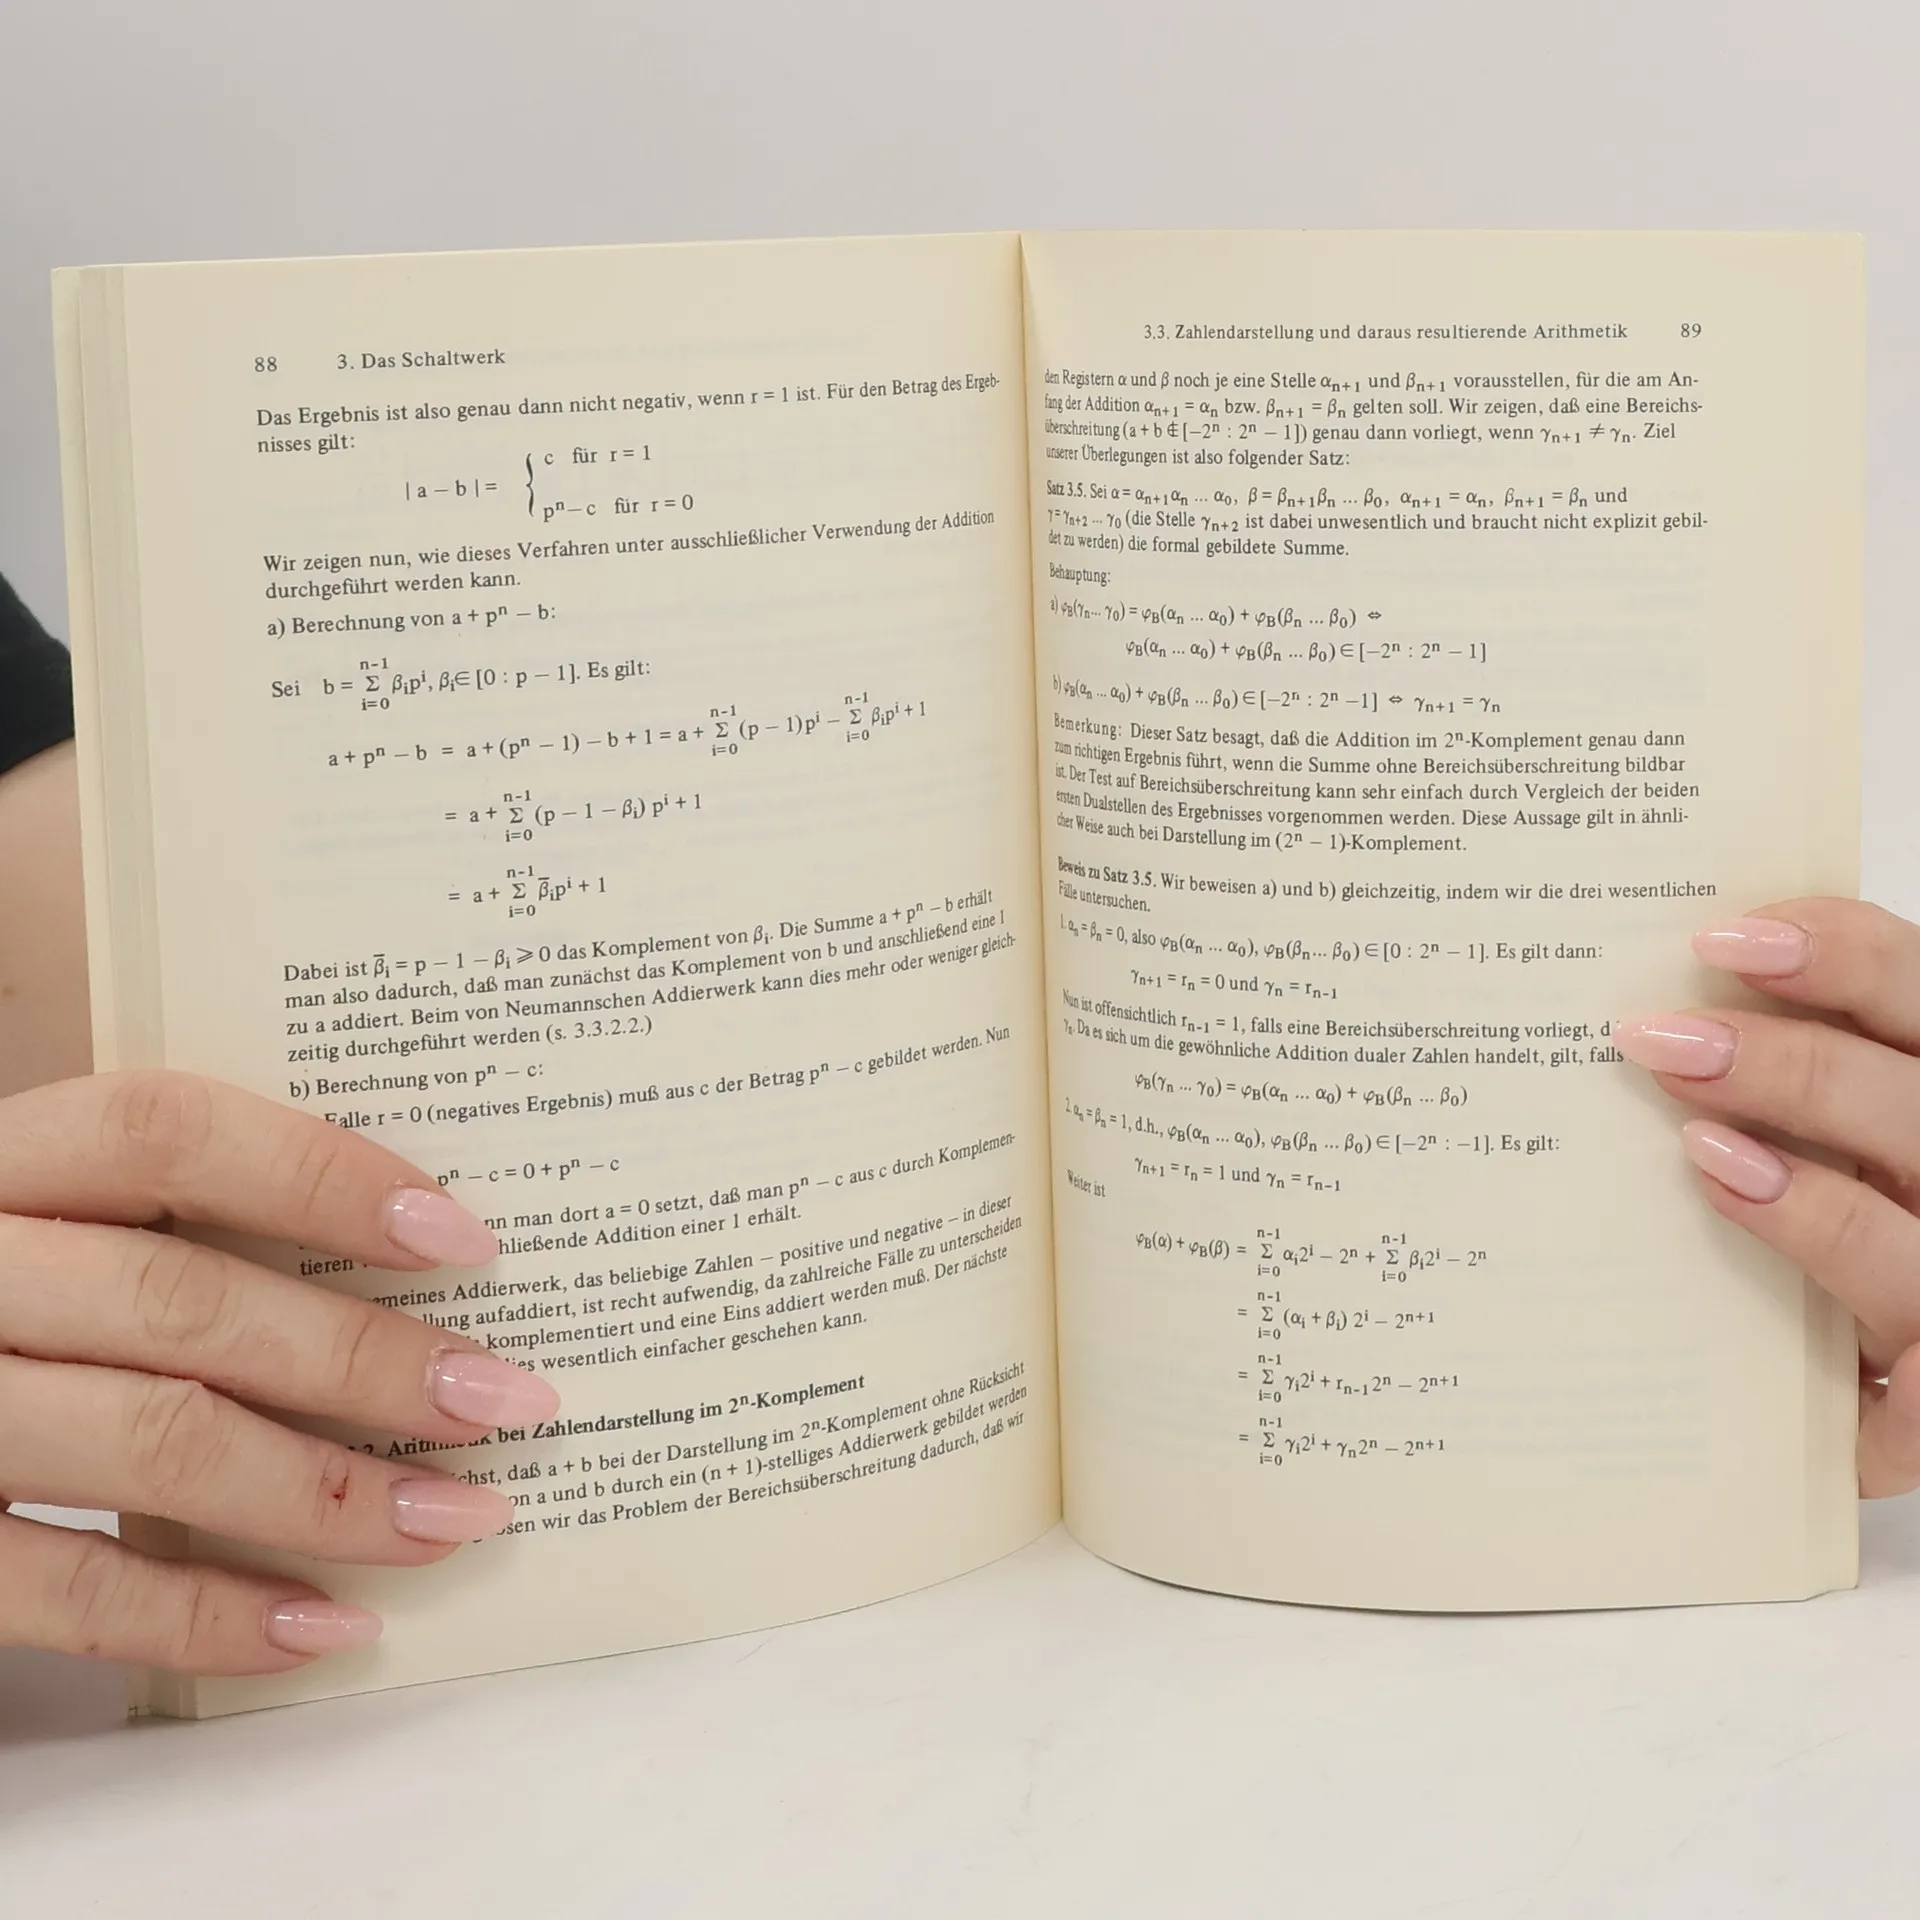 88 3. Das Schaltwerk
Das Ergebnis ist also genau dann nicht negativ, wenn r = 1 ist. Für den Betrag des Ergeb-
nisses gilt:
c für r = 1
| a – b | =
pⁿ – c für r = 0
Wir zeigen nun, wie dieses Verfahren unter ausschließlicher Verwendung der Addition
durchgeführt werden kann.
a) Berechnung von a + pⁿ – b:
n-1
Sei b = Σ βᵢpⁱ, βᵢ∈ [0 : p – 1]. Es gilt:
i=0
n-1 n-1
a + pⁿ – b = a + (pⁿ – 1) – b + 1 = a + Σ (p – 1)pⁱ – Σ βᵢpⁱ + 1
i=0 i=0
n-1
= a + Σ (p – 1 – βᵢ) pⁱ + 1
i=0
n-1
= a + Σ β̅ᵢpⁱ + 1
i=0
Dabei ist β̅ᵢ = p – 1 – βᵢ ⩾ 0 das Komplement von βᵢ. Die Summe a + pⁿ – b erhält
man also dadurch, daß man zunächst das Komplement von b und anschließend eine 1
zu a addiert. Beim von Neumannschen Addierwerk kann dies mehr oder weniger gleich-
zeitig durchgeführt werden (s. 3.3.2.2.)
b) Berechnung von pⁿ – c:
Falle r = 0 (negatives Ergebnis) muß aus c der Betrag pⁿ – c gebildet werden. Nun
pⁿ – c = 0 + pⁿ – c
man dort a = 0 setzt, daß man pⁿ – c aus c durch Komplemen-
tieren Addition einer 1 erhält.
Addierwerk, das beliebige Zahlen – positive und negative – in dieser
aufaddiert, ist recht aufwendig, da zahlreiche Fälle zu unterscheiden
komplementiert und eine Eins addiert werden muß. Der nächste
wesentlich einfacher geschehen kann.
bei Zahlendarstellung im 2ⁿ-Komplement
daß a + b bei der Darstellung im 2ⁿ-Komplement ohne Rücksicht
a und b durch ein (n + 1)-stelliges Addierwerk gebildet werden
wir das Problem der Bereichsüberschreitung dadurch, daß wir
3.3. Zahlendarstellung und daraus resultierende Arithmetik 89
den Registern α und β noch je eine Stelle αₙ₊₁ und βₙ₊₁ vorausstellen, für die am An-
fang der Addition αₙ₊₁ = αₙ bzw. βₙ₊₁ = βₙ gelten soll. Wir zeigen, daß eine Bereichs-
überschreitung (a + b ∉ [–2ⁿ : 2ⁿ – 1]) genau dann vorliegt, wenn γₙ₊₁ ≠ γₙ. Ziel
unserer Überlegungen ist also folgender Satz:
Satz 3.5. Sei α = αₙ₊₁αₙ ... α₀, β = βₙ₊₁βₙ ... β₀, αₙ₊₁ = αₙ, βₙ₊₁ = βₙ und
γ = γₙ₊₂ ... γ₀ (die Stelle γₙ₊₂ ist dabei unwesentlich und braucht nicht explizit gebil-
det zu werden) die formal gebildete Summe.
Behauptung:
a) φB(γₙ... γ₀) = φB(αₙ ... α₀) + φB(βₙ ... β₀) ⇔
φB(αₙ ... α₀) + φB(βₙ ... β₀) ∈ [–2ⁿ : 2ⁿ – 1]
b) φB(αₙ ... α₀) + φB(βₙ ... β₀) ∈ [–2ⁿ : 2ⁿ –1] ⇔ γₙ₊₁ = γₙ
Bemerkung: Dieser Satz besagt, daß die Addition im 2ⁿ-Komplement genau dann
zum richtigen Ergebnis führt, wenn die Summe ohne Bereichsüberschreitung bildbar
ist. Der Test auf Bereichsüberschreitung kann sehr einfach durch Vergleich der beiden
ersten Dualstellen des Ergebnisses vorgenommen werden. Diese Aussage gilt in ähnli-
cher Weise auch bei Darstellung im (2ⁿ – 1)-Komplement.
Beweis zu Satz 3.5. Wir beweisen a) und b) gleichzeitig, indem wir die drei wesentlichen
Fälle untersuchen.
1. αₙ = βₙ = 0, also φB(αₙ ... α₀), φB(βₙ... β₀) ∈ [0 : 2ⁿ – 1]. Es gilt dann:
γₙ₊₁ = rₙ = 0 und γₙ = rₙ₋₁
Nun ist offensichtlich rₙ₋₁ = 1, falls eine Bereichsüberschreitung vorliegt,
γₙ. Da es sich um die gewöhnliche Addition dualer Zahlen handelt, gilt, falls
φB(γₙ ... γ₀) = φB(αₙ ... α₀) + φB(βₙ ... β₀)
2. αₙ = βₙ = 1, d.h., φB(αₙ ... α₀), φB(βₙ ... β₀) ∈ [–2ⁿ : –1]. Es gilt:
γₙ₊₁ = rₙ = 1 und γₙ = rₙ₋₁
Weiter ist
n-1 n-1
φB(α) + φB(β) = Σ αᵢ2ⁱ – 2ⁿ + Σ βᵢ2ⁱ – 2ⁿ
i=0 i=0
n-1
= Σ (αᵢ + βᵢ) 2ⁱ – 2ⁿ⁺¹
i=0
n-1
= Σ γᵢ2ⁱ + rₙ₋₁2ⁿ – 2ⁿ⁺¹
i=0
n-1
= Σ γᵢ2ⁱ + γₙ2ⁿ – 2ⁿ⁺¹
i=0